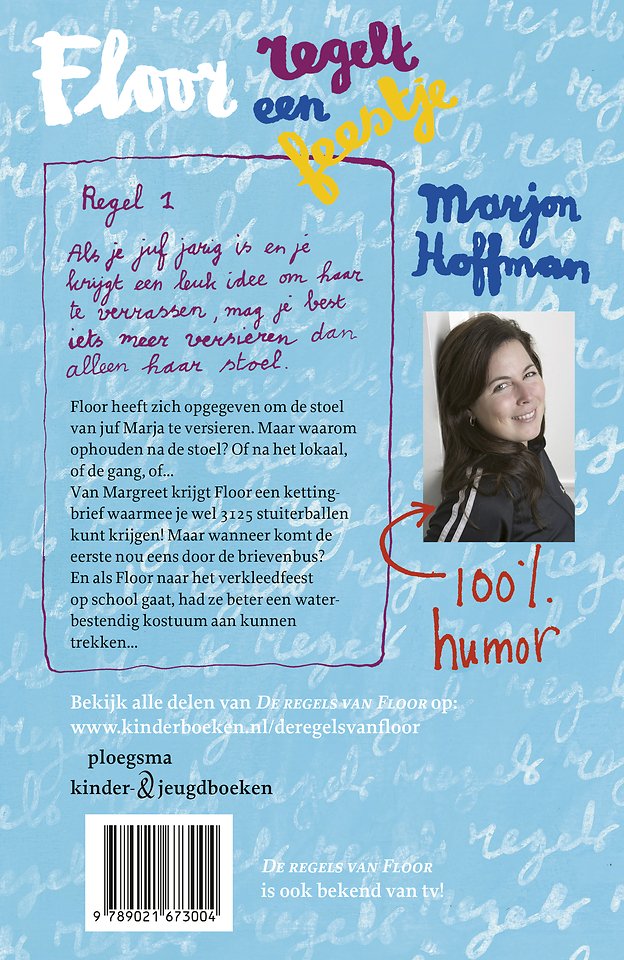 Floor regelt
een
feestje
Regel 1
Als je juf jarig is en je
krijgt een leuk idee om haar
te verrassen, mag je best
iets meer versieren dan
alleen haar stoel.
Floor heeft zich opgegeven om de stoel
van juf Marja te versieren. Maar waarom
ophouden na de stoel? Of na het lokaal,
of de gang, of...
Van Margreet krijgt Floor een ketting-
brief waarmee je wel 3125 stuiterballen
kunt krijgen! Maar wanneer komt de
eerste nou eens door de brievenbus?
En als Floor naar het verkleedfeest
op school gaat, had ze beter een water-
bestendig kostuum aan kunnen
trekken...
Marjon
Hoffman
100%
humor
Bekijk alle delen van De regels van Floor op:
www.kinderboeken.nl/deregelsvanfloor
ploegsma
kinder- & jeugdboeken
9 789021 673004
De regels van Floor
is ook bekend van tv!